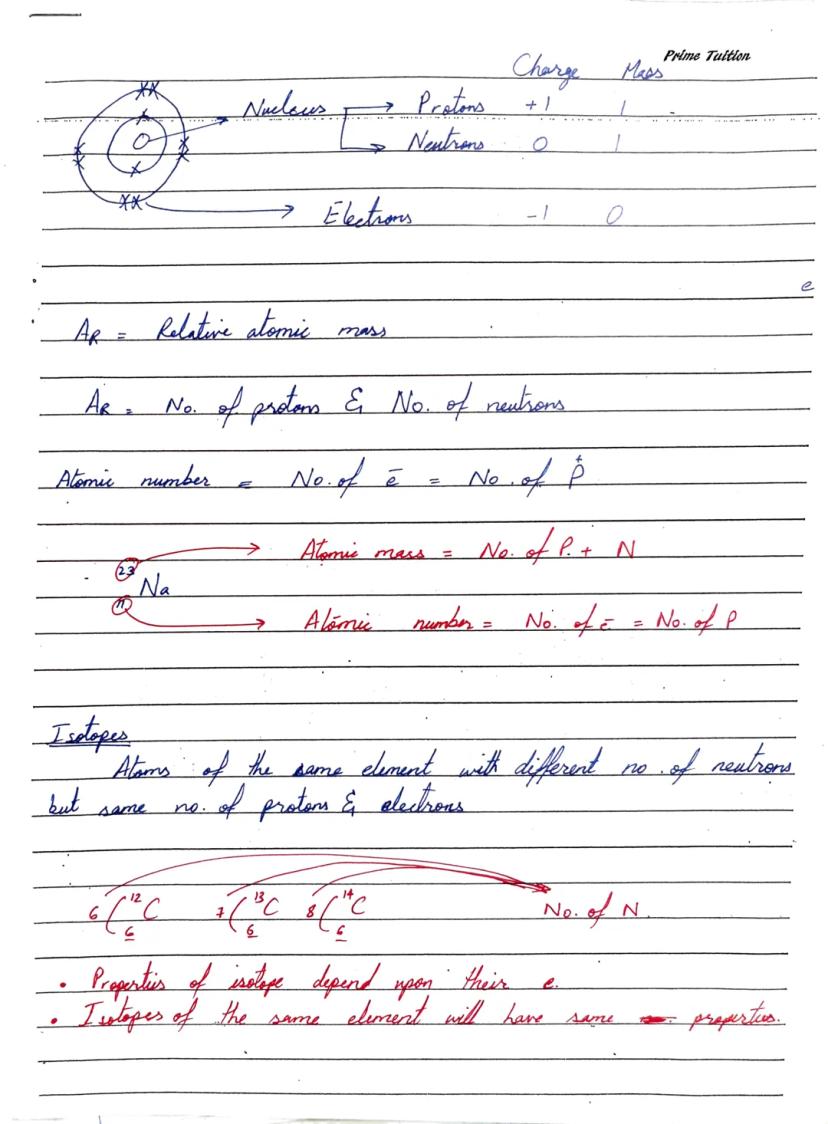 Prime Tuition
Charge Mass
Nucleus Protons +1 1
Neutrons 0 1
Electrons -1 0
e
AR = Relative atomic mass
AR = No. of protons & No. of neutrons
Atomic number = No. of e̅ = No. of P⁺
Atomic mass = No. of P. + N
23
Na
11
Atomic number = No. of e̅ = No. of P
Isotopes
Atoms of the same element with different no. of neutrons
but same no. of protons & electrons
6 ( ¹²₆C 7 ( ¹³₆C 8 ( ¹⁴₆C No. of N.
• Properties of isotope depend upon their e.
• Isotopes of the same element will have same properties.